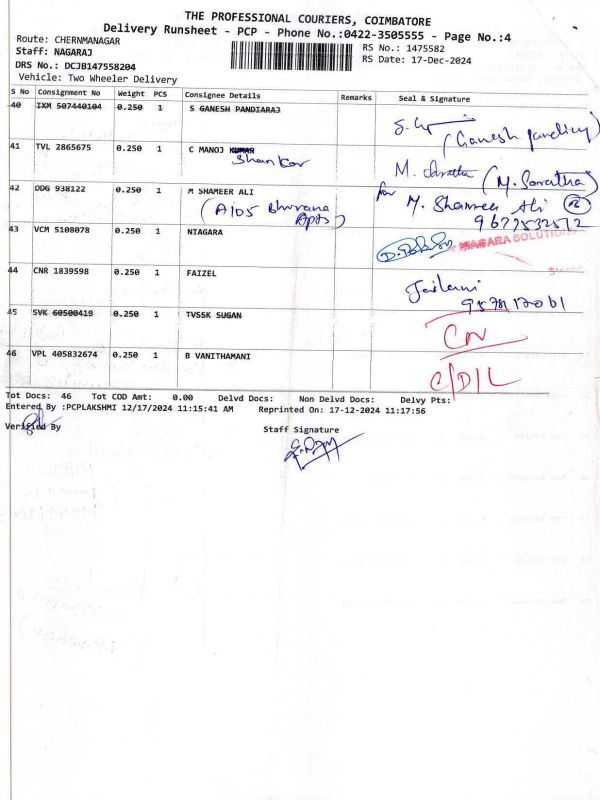 THE PROFESSIONAL COURIERS, COIMBATORE
Delivery Runsheet - PCP - Phone No.:0422-3505555 - Page No.:4
Route: CHERNMANAGAR
RS No.: 1475582
Staff: NAGARAJ
RS Date: 17-Dec-2024
DRS No.: DCJB147558204
Vehicle: Two Wheeler Delivery
S No Consignment No Weight PCS Consignee Details Remarks Seal & Signature
40 IXM 507440104 0.250 1 S GANESH PANDIARAJ
(Ganesh pandiraj)
41 TVL 2865675 0.250 1 C MANOJ KUMAR
Shankar
M. Saratha (M. Saratha)
42 DDG 938122 0.250 1 M SHAMEER ALI
for M. Shameer Ali
(A105 Bhuvana Apts)
9677532572
43 VCM 5108078 0.250 1 NIAGARA
NIAGARA SOLUTIONS
44 CNR 1839598 0.250 1 FAIZEL
Jailani
9578117061
45 SVK 60500419 0.250 1 TVSSK SUGAN
CN
46 VPL 405832674 0.250 1 B VANITHAMANI
C/D/L
Tot Docs: 46 Tot COD Amt: 0.00 Delvd Docs: Non Delvd Docs: Delvy Pts:
Entered By :PCPLAKSHMI 12/17/2024 11:15:41 AM Reprinted On: 17-12-2024 11:17:56
Verified By Staff Signature